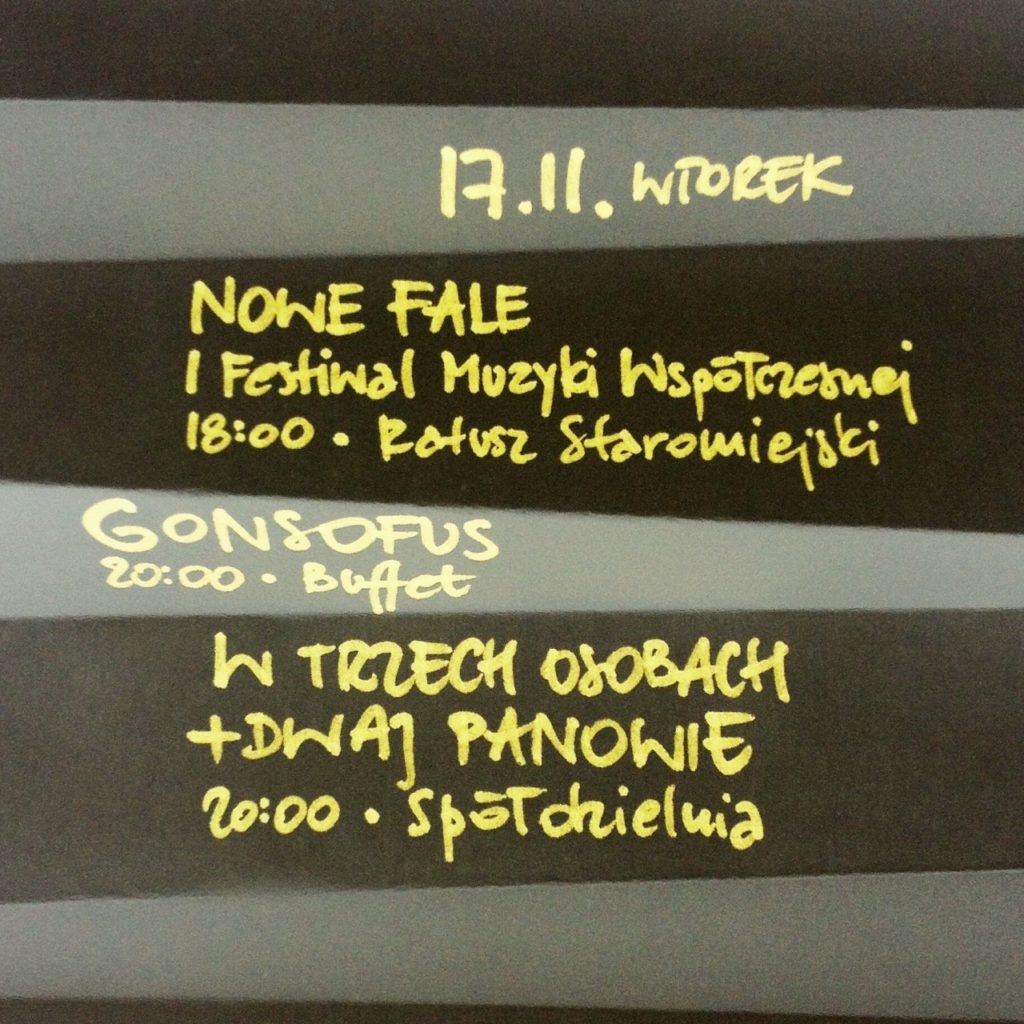 17.11. WTOREK
NOWE FALE
I Festiwal Muzyki Współczesnej
18:00 • Ratusz Staromiejski
GONSOFUS
20:00 • Buffet
W TRZECH OSOBACH
+DWAJ PANOWIE
20:00 • Spółdzielnia